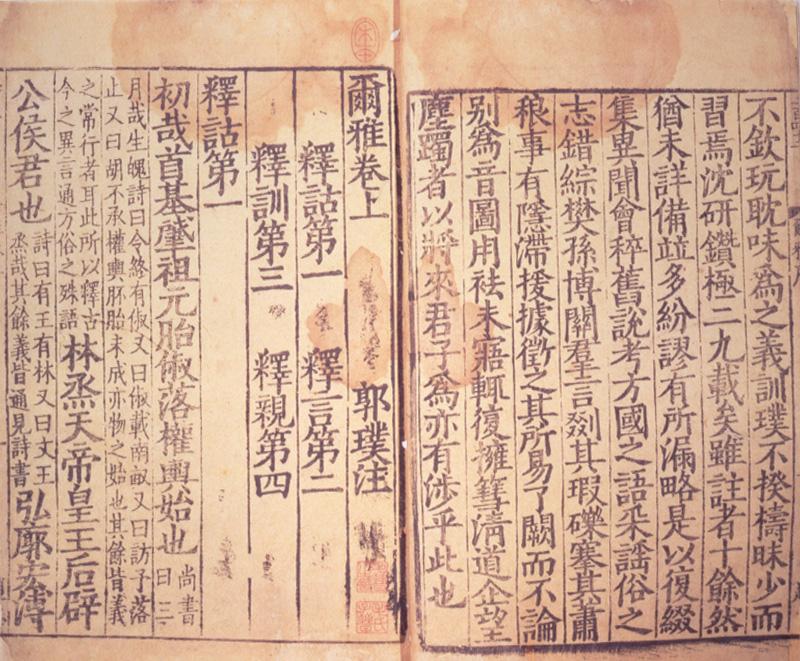 不欽玩耽味爲之義訓璞不揆檮昧少而
習焉沈研鑽極二九載矣雖註者十餘然
猶未詳備竝多紛謬有所漏略是以復綴
集異聞會稡舊說考方國之語采謠俗之
志錯綜樊孫博關羣言剟其瑕礫搴其蕭
稂事有隱滯援據徵之其所易了闕而不論
别爲音圖用祛未寤輒復擁篲清道企望
塵躅者以將來君子爲亦有涉乎此也
爾雅卷上 郭璞注
釋詁第一 釋言第二
釋訓第三 釋親第四
釋詁第一
初哉首基肈祖元胎俶落權輿始也 尚書曰三
月哉生魄詩曰令終有俶又曰俶載南畝又曰訪予落
止又曰胡不承權輿胚胎未成亦物之始也其餘皆義
之常行者耳此所以釋古
今之異言通方俗之殊語
林烝天帝皇王后辟
公侯君也
詩曰有王有林又曰文王
烝哉其餘義皆通見詩書
弘廓宏溥